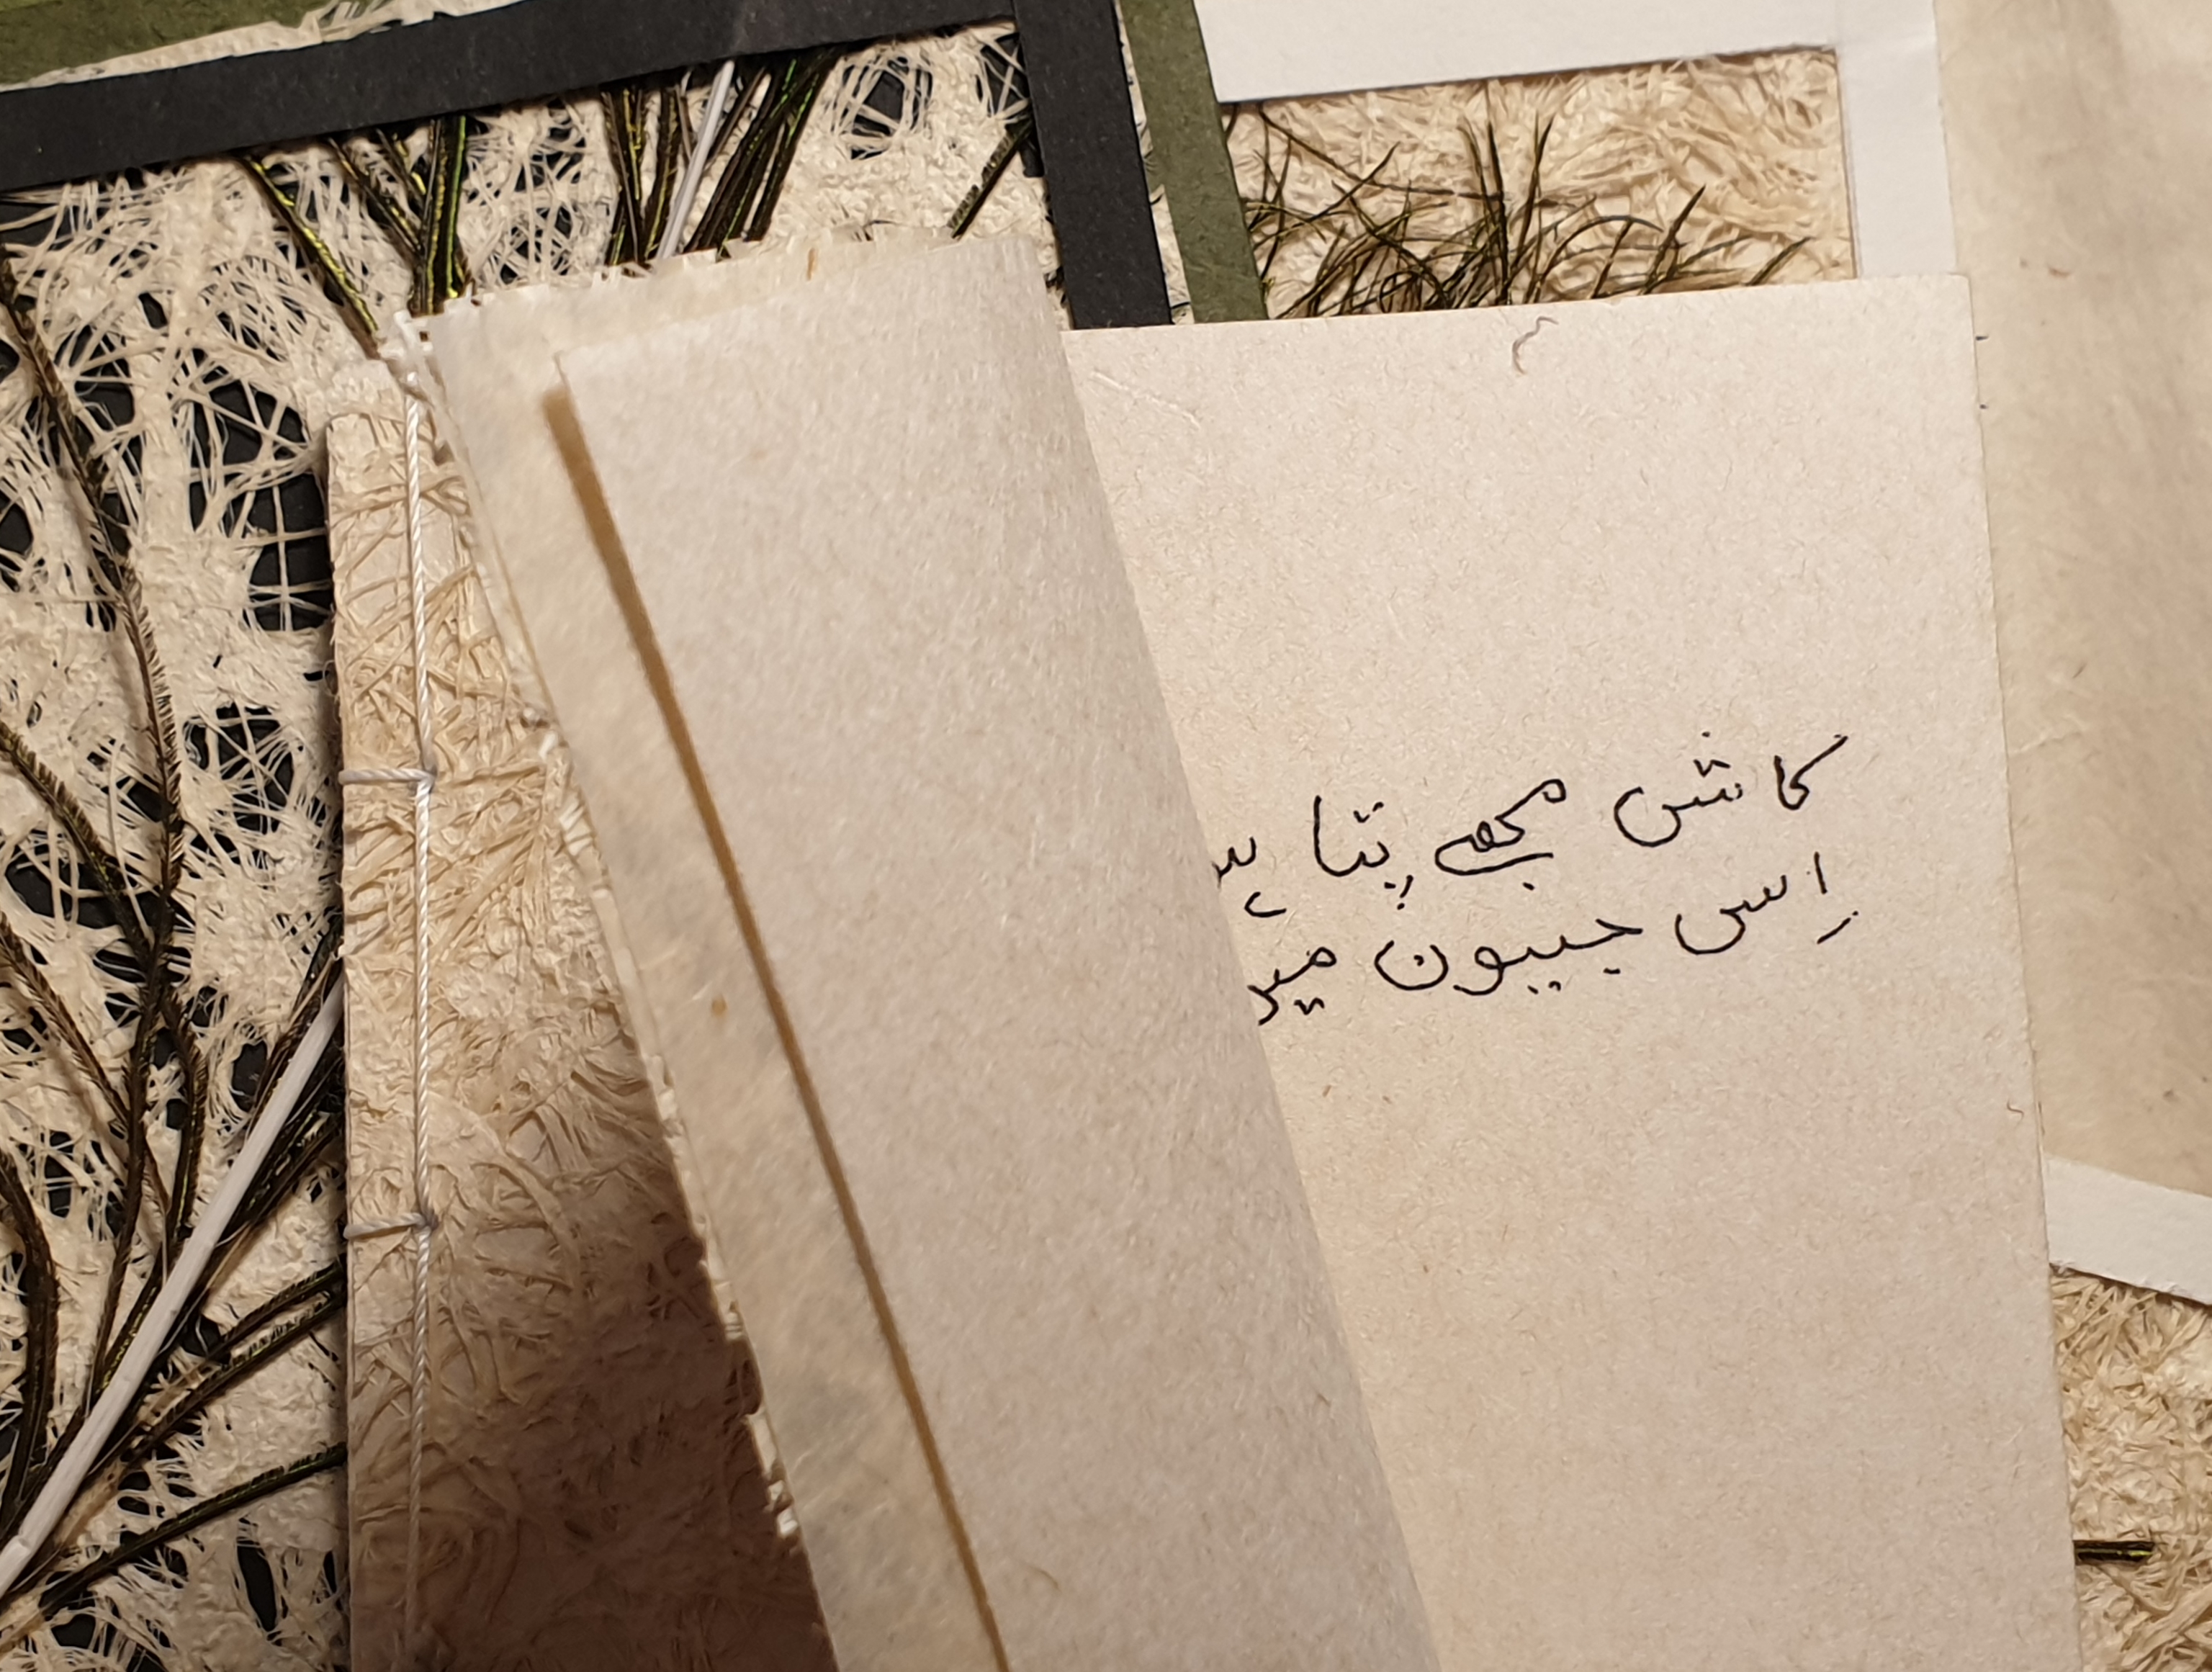 کاش مجھے پتا
اِس جیون میں